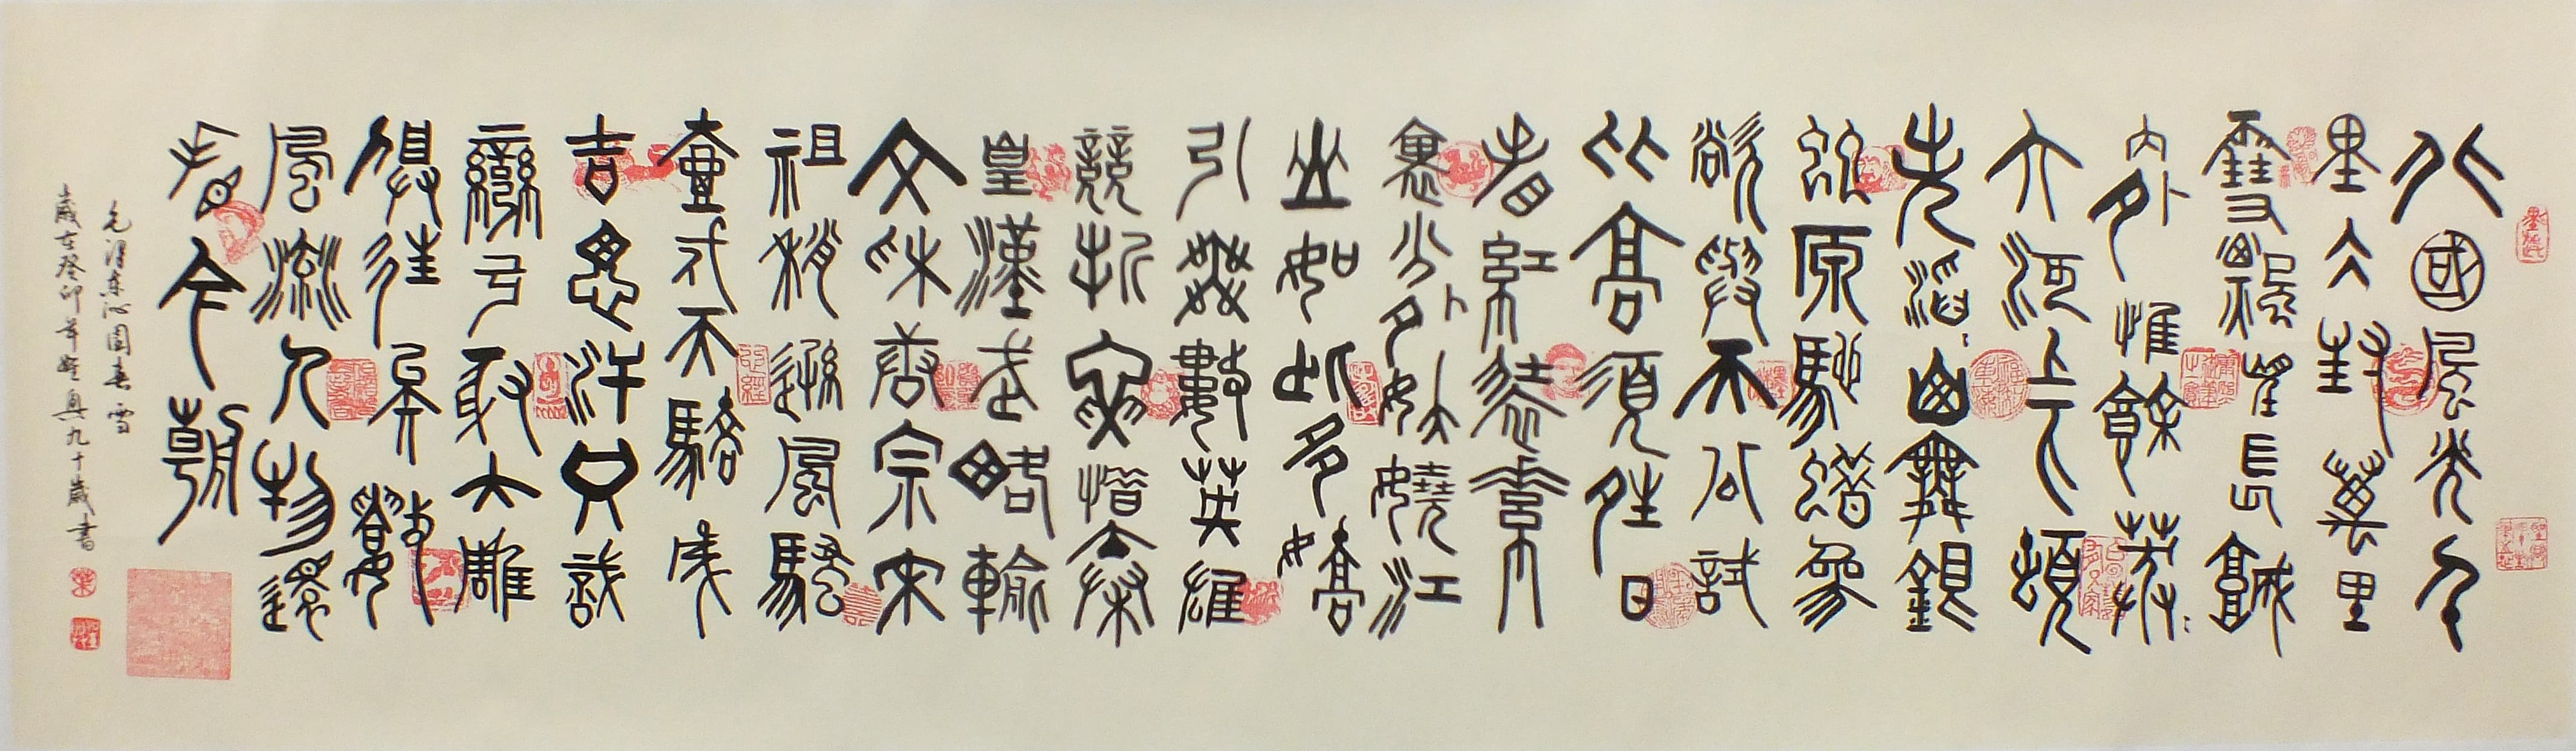 北國風光千
里冰封萬里
雪飄望長城
内外惟餘莽〻
大河上下頓
失滔〻山舞銀
蛇原馳蠟象
欲與天公試
比高須晴日
看紅裝素
裹分外妖嬈江
山如此多嬌
引無數英雄
競折腰惜秦
皇漢武略輸
文采唐宗宋
祖稍遜風騷
壹代天驕成
吉思汗只識
彎弓射大雕
俱往矣數
風流人物還
看今朝
毛澤東沁園春雪
歲在癸卯年九十歲書